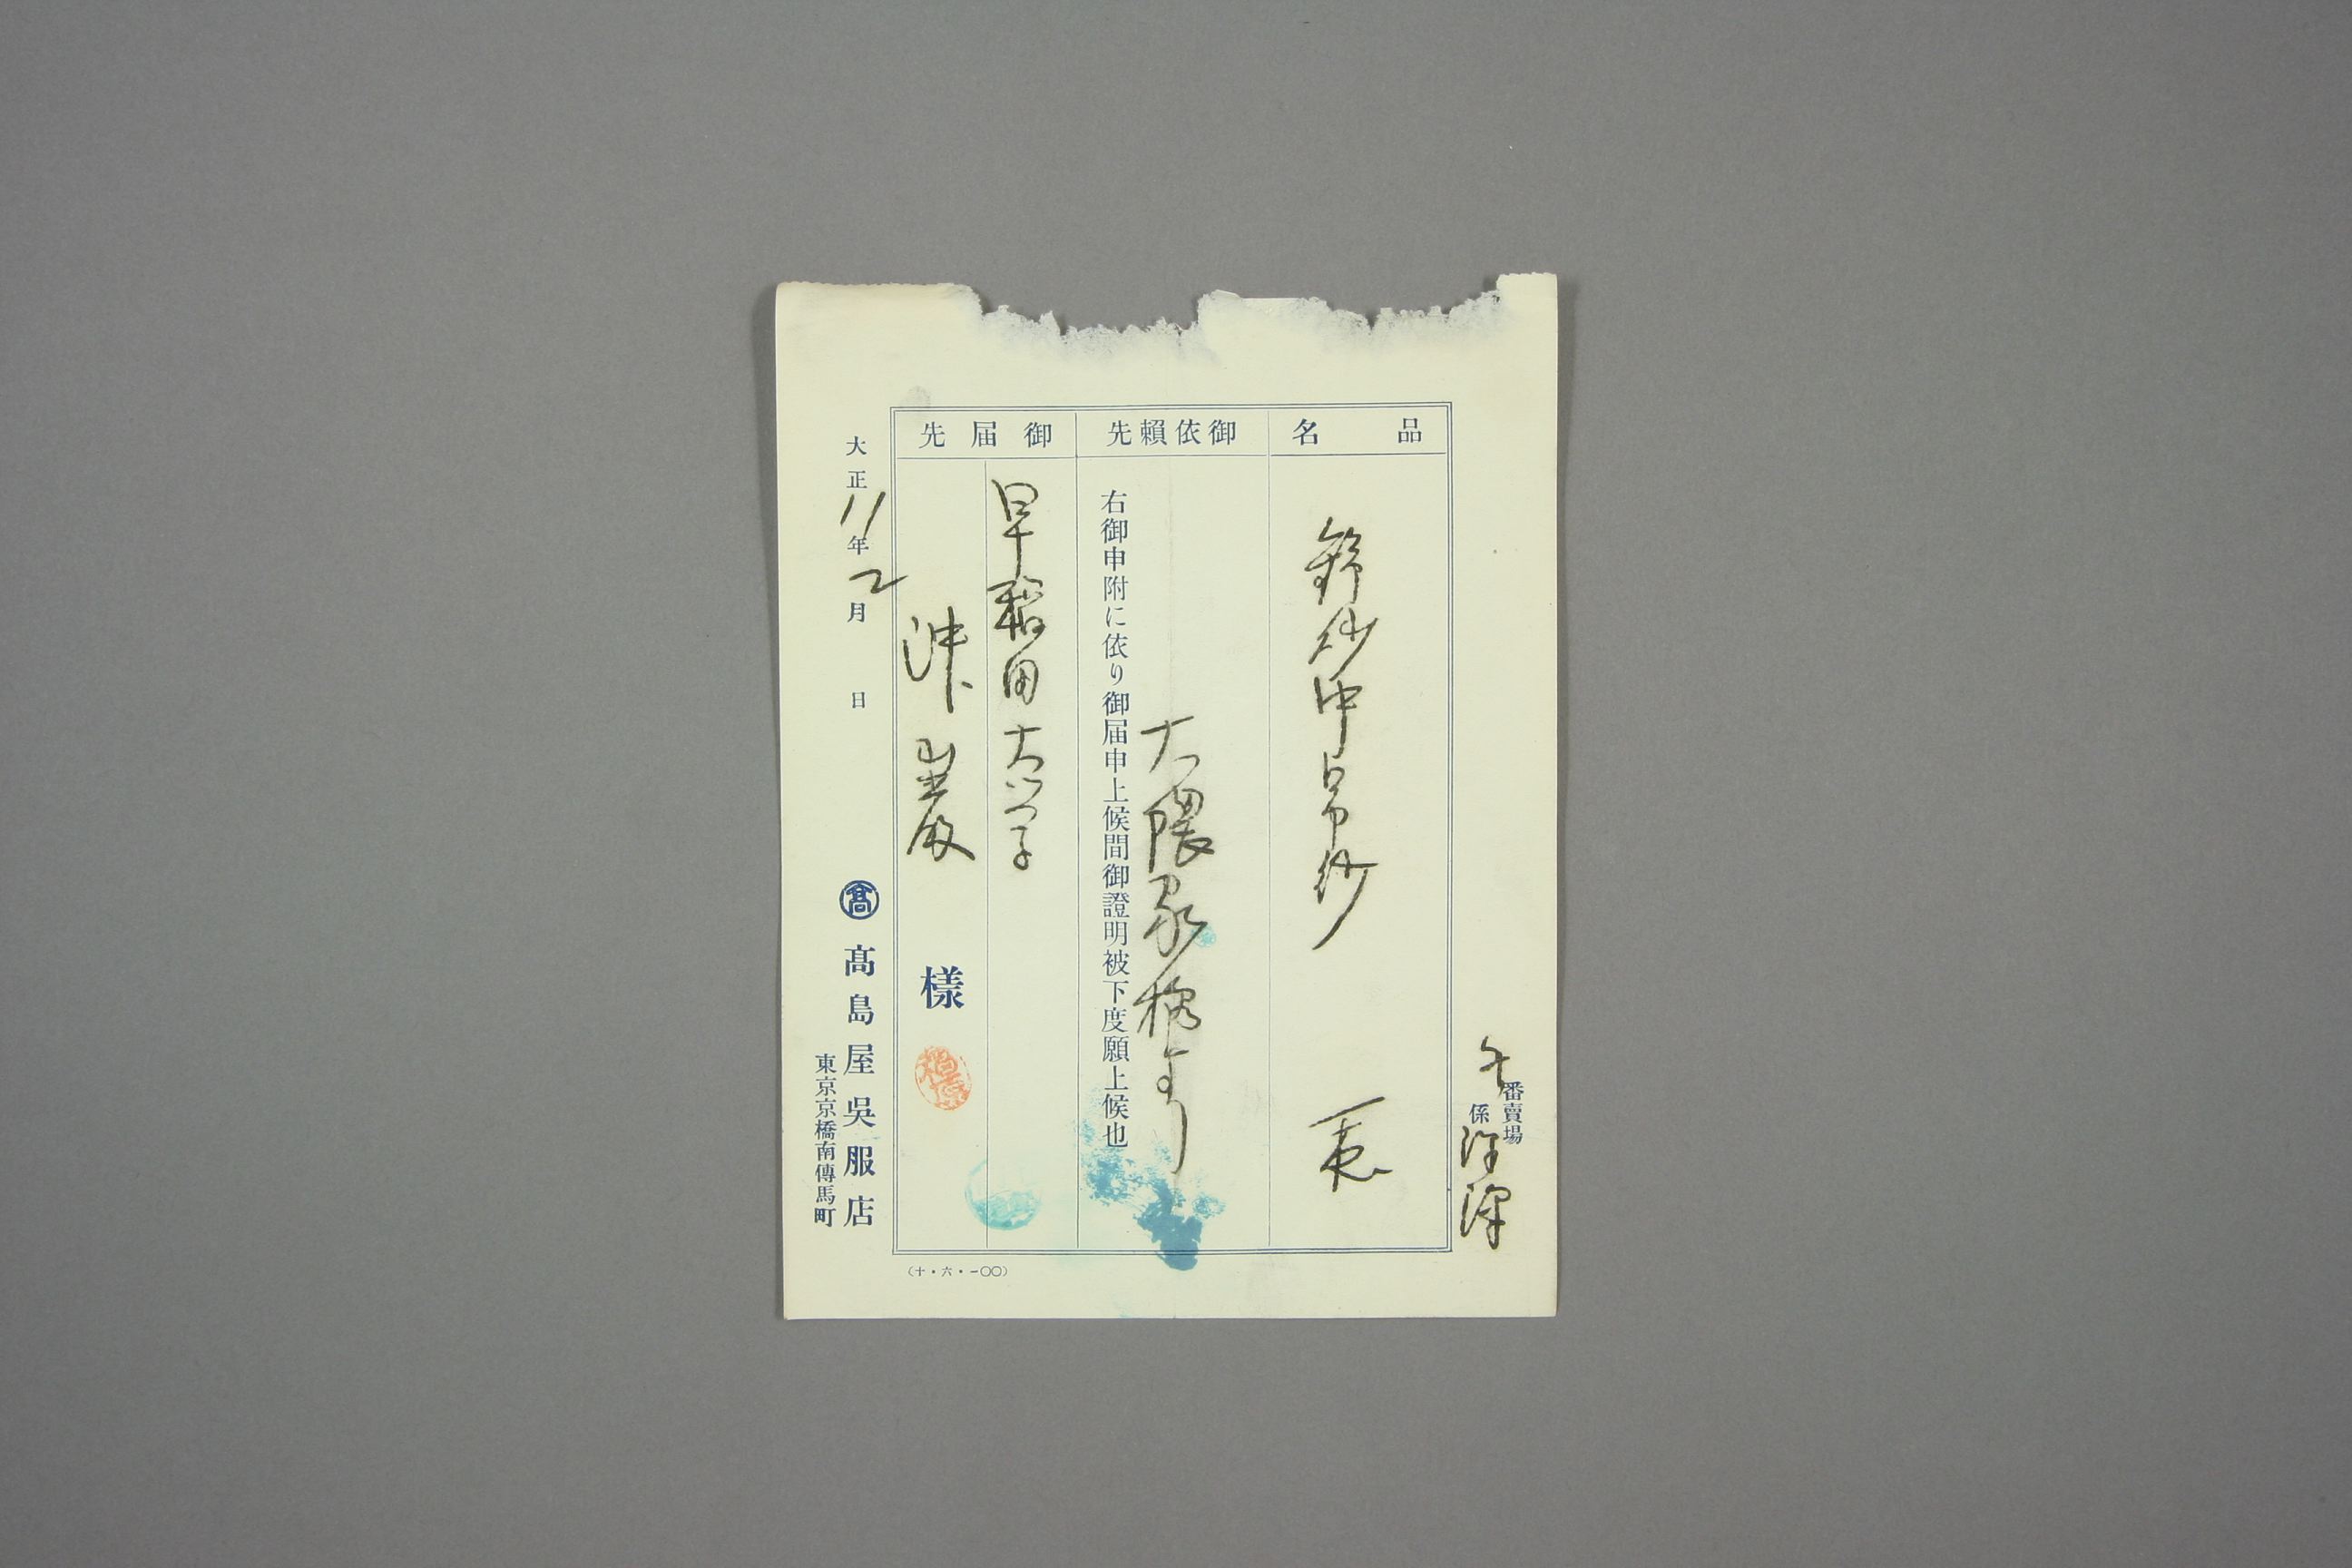 品名
御依賴先
御届先
番賣場
係
錦紗中帛紗
大隈家様より
右御申附に依り御届申上候間御證明被下度願上候也
早稲田大学
様
大正11年2月 日
髙 髙島屋吳服店
東京京橋南傳馬町
(十・六・一〇〇)